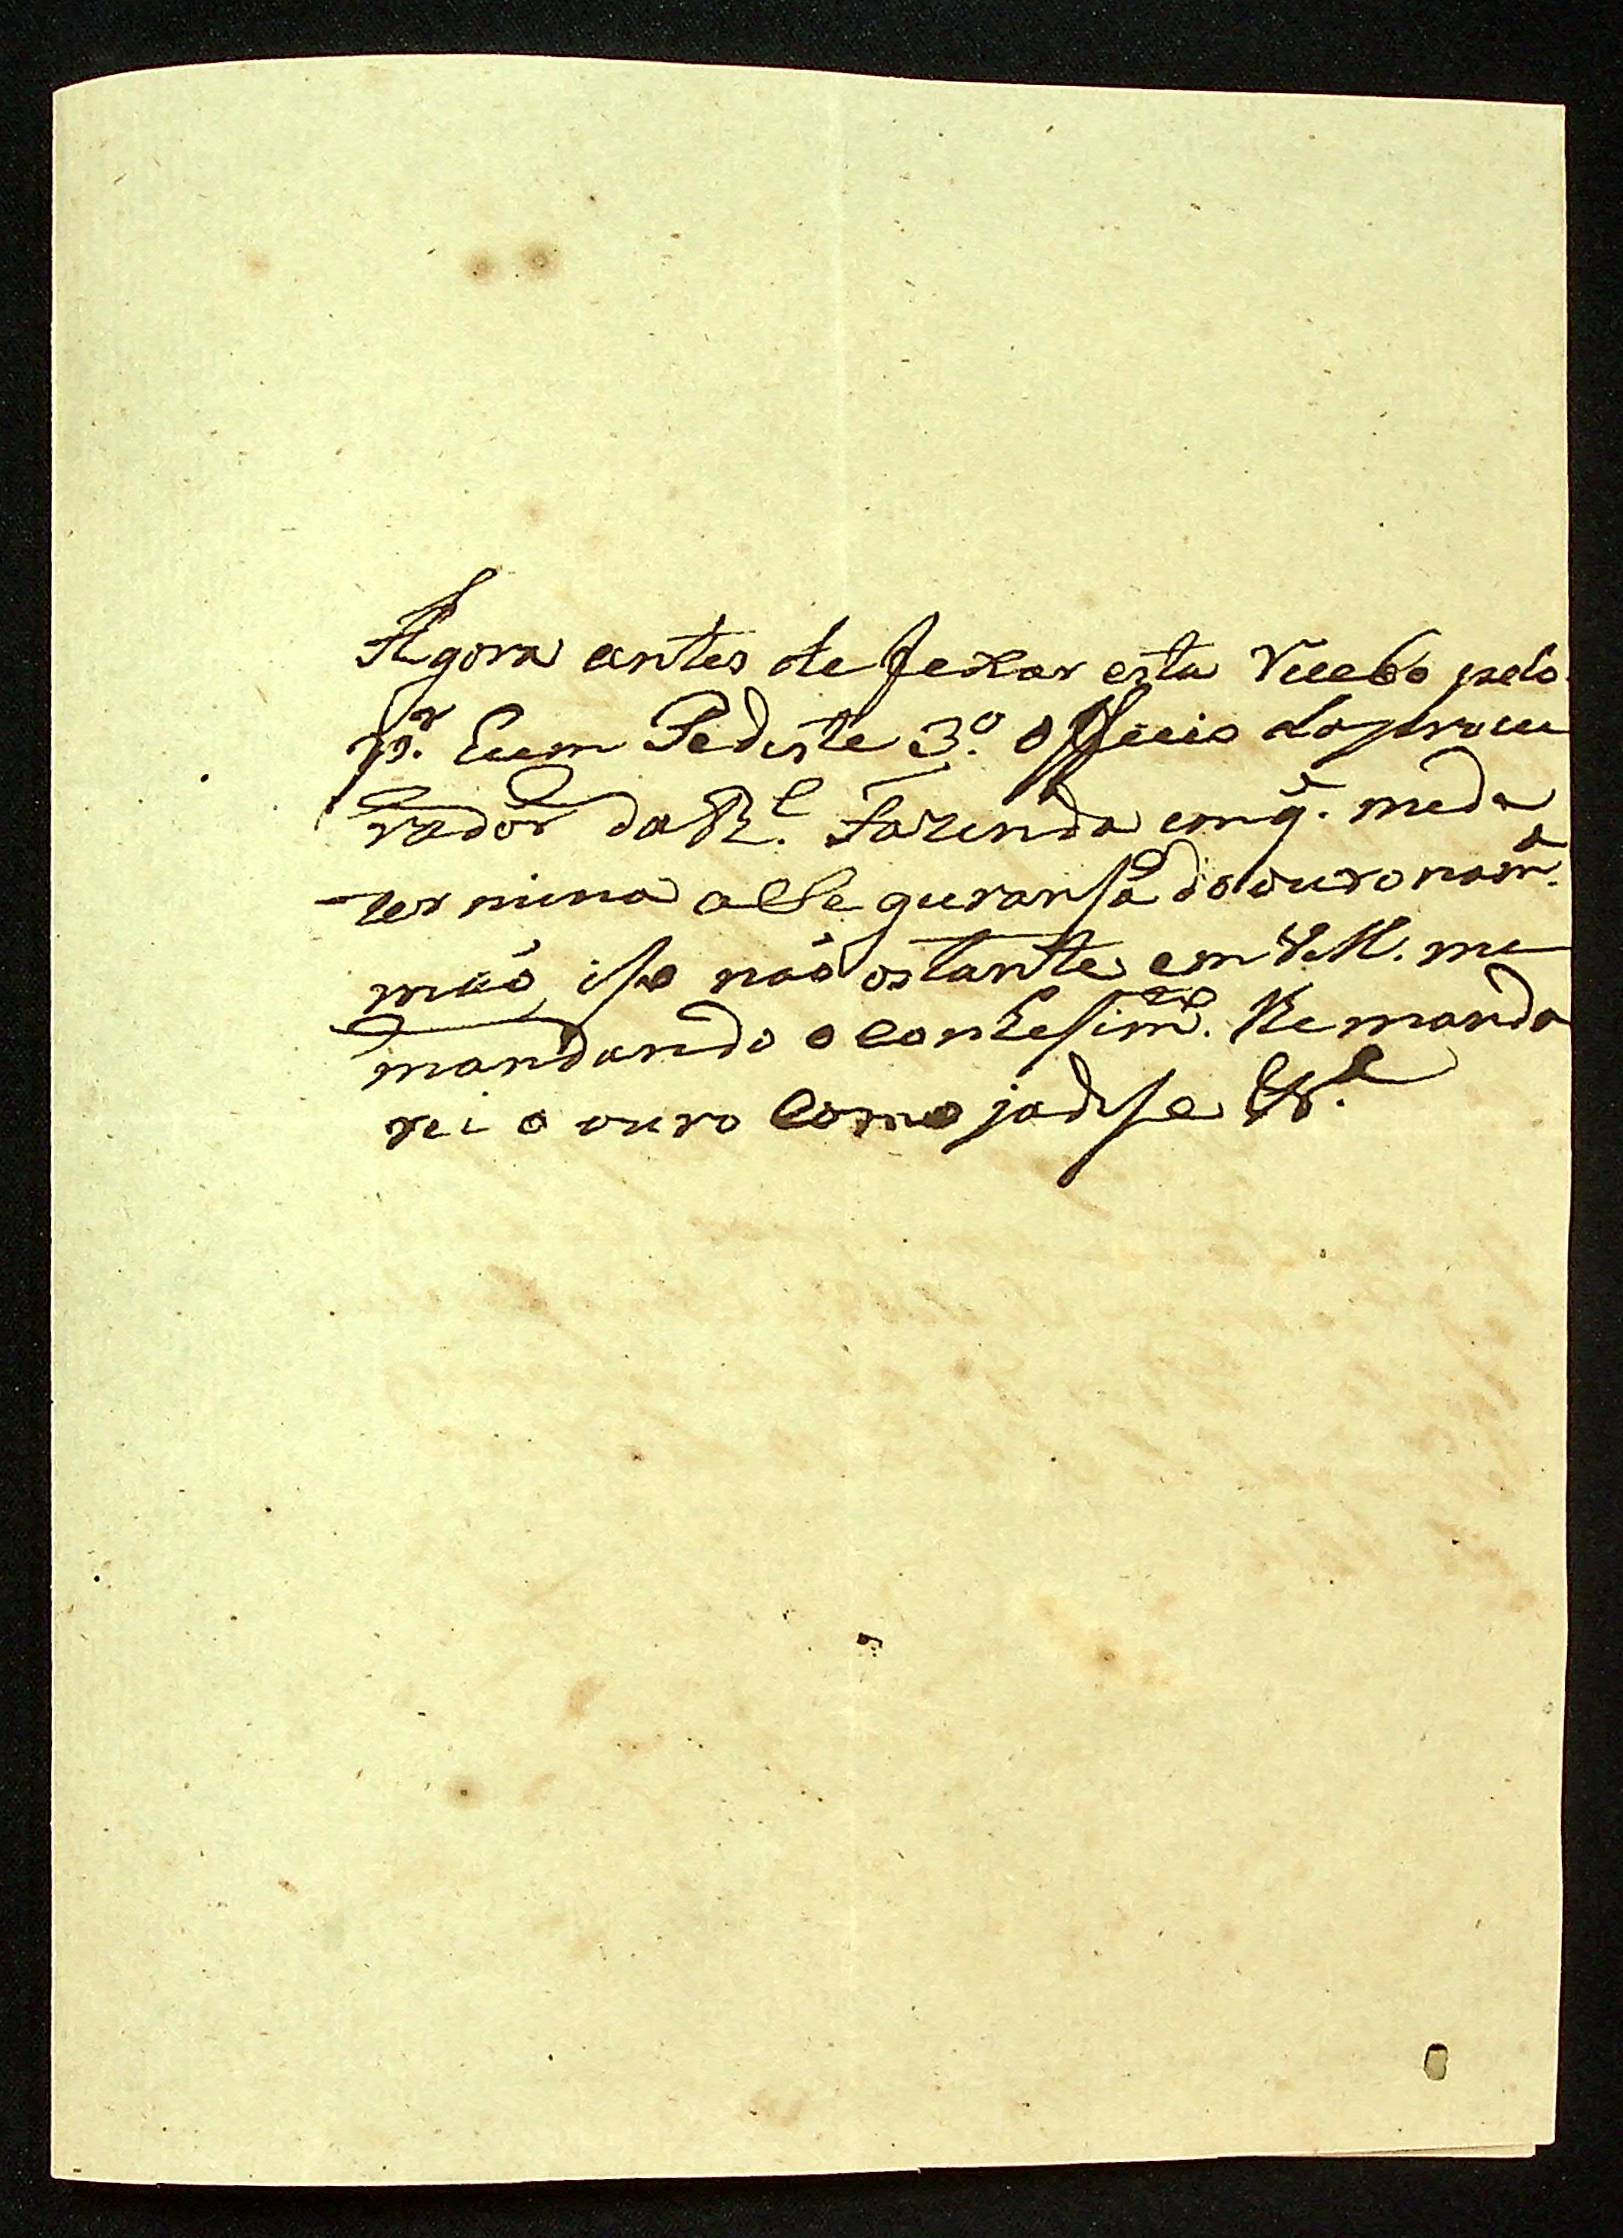 Agora antes de fexar esta Reebo pelo
Pediste 3.º officio do procu
rador da R.l Fazenda em q̃. me de
termina a Seguransa do ouro na m.ª
mão, iso não ostante em V.M. me
mandando o conhesim.to Remanda
rei o ouro Como ja dise &.ª